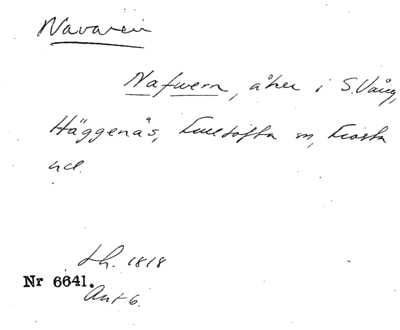 Navaren
Nafwern, åker i S. Vång,
Häggenäs, Fulltofta sn, Frosta
hd.
Lh. 1818
Nr 6641.
Ant 6.